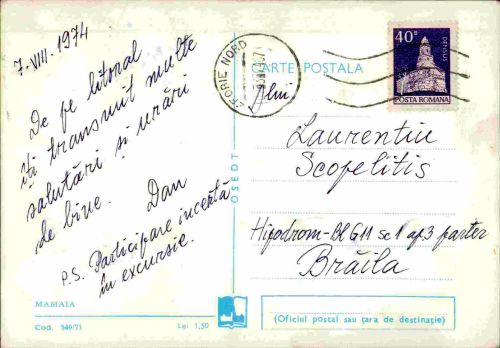 7.VIII.1974
De pe litoral
îți transmit multe
salutări și urări
de bine. Dan
P.S. Participare incertă
în excursie.
MAMAIA
Cod. 540/71
Lei 1,50
OSEDT
EFORIE NORD
CARTE POSTALA
40B
DENSUS
POSTA ROMANA
Laurentiu
Scopelitis
Hipodrom-Bl G11 sc 1 ap.3 parter
Brăila
(Oficiul postal sau țara de destinație)